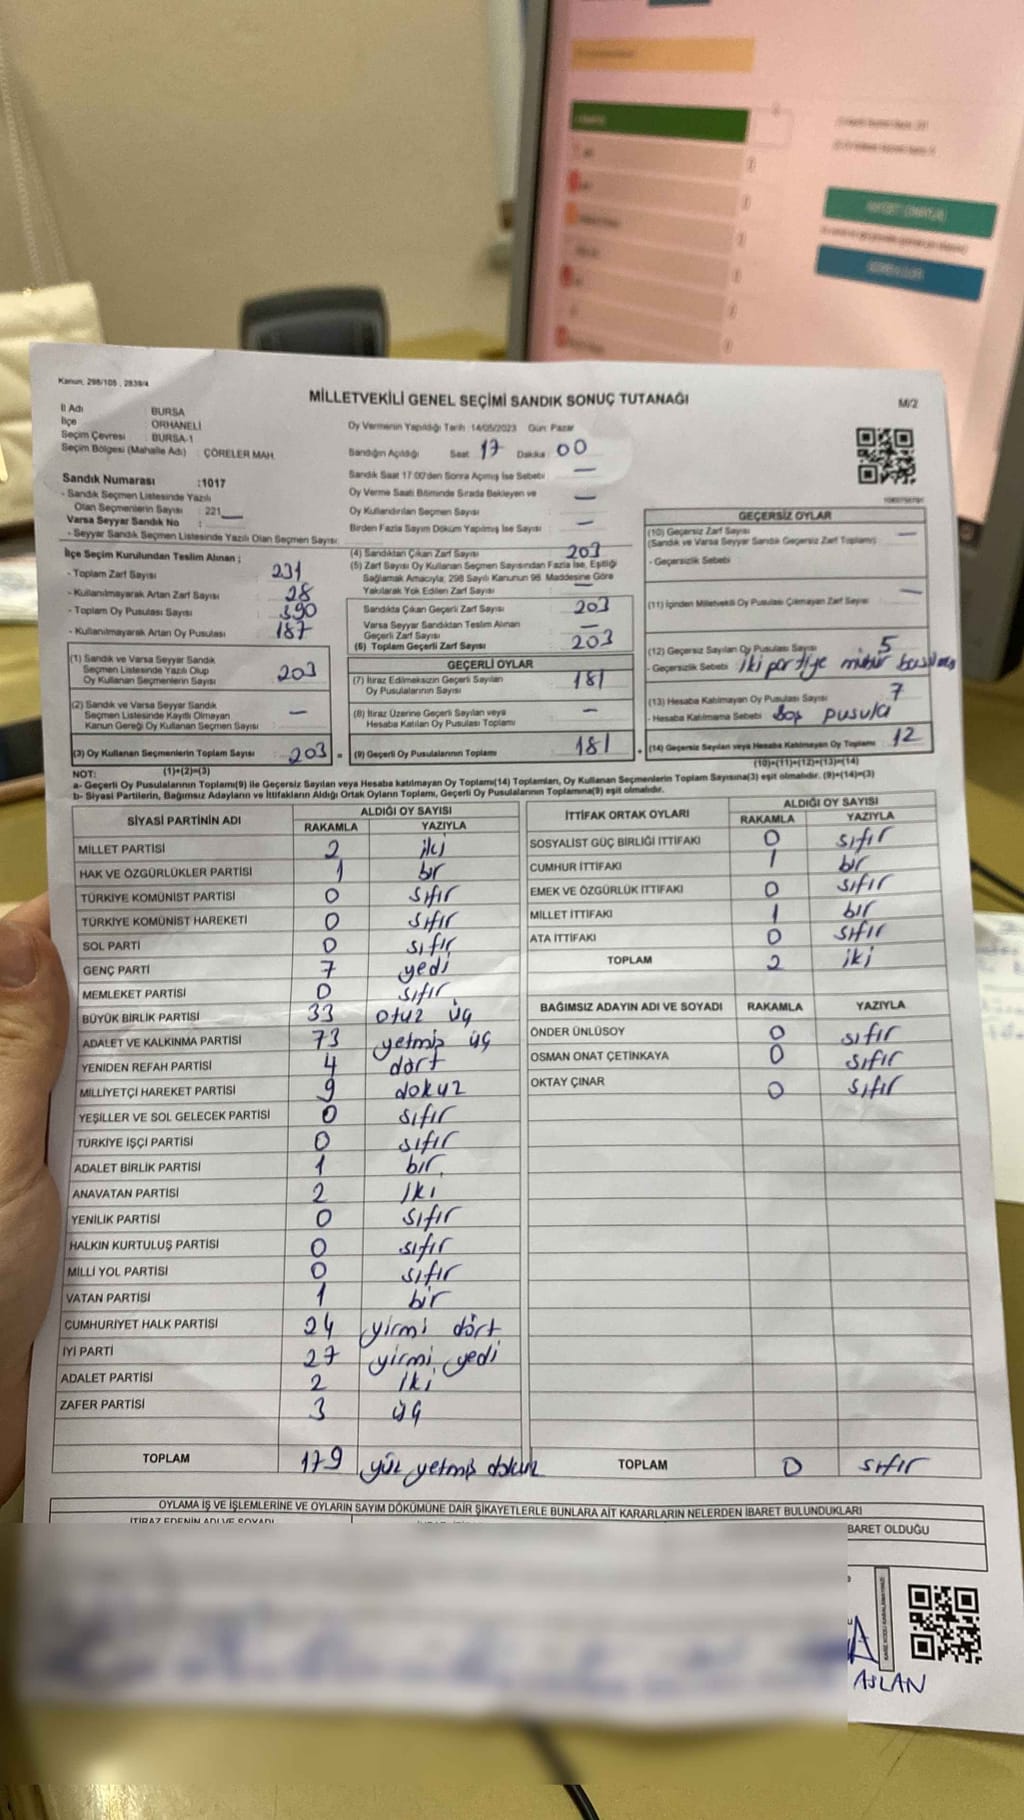 Kanun, 298/105 , 2839/4
MİLLETVEKİLİ GENEL SEÇİMİ SANDIK SONUÇ TUTANAĞI
M/2
İl Adı : BURSA
İlçe : ORHANELİ
Seçim Çevresi : BURSA-1
Seçim Bölgesi (Mahalle Adı) : ÇÖRELER MAH.
Oy Vermenin Yapıldığı Tarih :14/05/2023 Gün: Pazar
Sandığın Açıldığı Saat : 17 Dakika : 00
Sandık Saat 17:00'den Sonra Açılmış İse Sebebi : —
Oy Verme Saati Bitiminde Sırada Bekleyen ve
Oy Kullandırılan Seçmen Sayısı : —
Birden Fazla Sayım Döküm Yapılmış İse Sayısı : —
Sandık Numarası :1017
- Sandık Seçmen Listesinde Yazılı
Olan Seçmenlerin Sayısı : 221
Varsa Seyyar Sandık No :
- Seyyar Sandık Seçmen Listesinde Yazılı Olan Seçmen Sayısı:
İlçe Seçim Kurulundan Teslim Alınan ;
- Toplam Zarf Sayısı 231
- Kullanılmayarak Artan Zarf Sayısı 28
- Toplam Oy Pusulası Sayısı 390
- Kullanılmayarak Artan Oy Pusulası 187
(1) Sandık ve Varsa Seyyar Sandık
Seçmen Listesinde Yazılı Olup
Oy Kullanan Seçmenlerin Sayısı 203
(2) Sandık ve Varsa Seyyar Sandık
Seçmen Listesinde Kayıtlı Olmayan
Kanun Gereği Oy Kullanan Seçmen Sayısı —
(3) Oy Kullanan Seçmenlerin Toplam Sayısı 203 =
(1)+(2)=(3)
(4) Sandıktan Çıkan Zarf Sayısı 203
(5) Zarf Sayısı Oy Kullanan Seçmen Sayısından Fazla İse, Eşitliği
Sağlamak Amacıyla; 298 Sayılı Kanunun 98. Maddesine Göre
Yakılarak Yok Edilen Zarf Sayısı —
Sandıkta Çıkan Geçerli Zarf Sayısı 203
Varsa Seyyar Sandıktan Teslim Alınan
Geçerli Zarf Sayısı —
(6) Toplam Geçerli Zarf Sayısı 203
GEÇERLİ OYLAR
(7) İtiraz Edilmeksizin Geçerli Sayılan
Oy Pusulalarının Sayısı 181
(8) İtiraz Üzerine Geçerli Sayılan veya
Hesaba Katılan Oy Pusulası Toplamı —
(9) Geçerli Oy Pusulalarının Toplamı 181 +
GEÇERSİZ OYLAR
(10) Geçersiz Zarf Sayısı
(Sandık ve Varsa Seyyar Sandık Geçersiz Zarf Toplamı) —
- Geçersizlik Sebebi
(11) İçinden Milletvekili Oy Pusulası Çıkmayan Zarf Sayısı —
(12) Geçersiz Sayılan Oy Pusulası Sayısı 5
- Geçersizlik Sebebi iki partiye mühür basılması
(13) Hesaba Katılmayan Oy Pusulası Sayısı 7
- Hesaba Katılmama Sebebi Boş pusula
(14) Geçersiz Sayılan veya Hesaba Katılmayan Oy Toplamı 12
(10)+(11)+(12)+(13)=(14)
NOT:
a- Geçerli Oy Pusulalarının Toplamı(9) ile Geçersiz Sayılan veya Hesaba katılmayan Oy Toplamı(14) Toplamları, Oy Kullanan Seçmenlerin Toplam Sayısına(3) eşit olmalıdır. (9)+(14)=(3)
b- Siyasi Partilerin, Bağımsız Adayların ve İttifakların Aldığı Ortak Oyların Toplamı, Geçerli Oy Pusulalarının Toplamına(9) eşit olmalıdır.
SİYASİ PARTİNİN ADI ALDIĞI OY SAYISI
RAKAMLA YAZIYLA
MİLLET PARTİSİ 2 iki
HAK VE ÖZGÜRLÜKLER PARTİSİ 1 bir
TÜRKİYE KOMÜNİST PARTİSİ 0 sıfır
TÜRKİYE KOMÜNİST HAREKETİ 0 sıfır
SOL PARTİ 0 sıfır
GENÇ PARTİ 7 yedi
MEMLEKET PARTİSİ 0 sıfır
BÜYÜK BİRLİK PARTİSİ 33 otuz üç
ADALET VE KALKINMA PARTİSİ 73 yetmiş üç
YENİDEN REFAH PARTİSİ 4 dört
MİLLİYETÇİ HAREKET PARTİSİ 9 dokuz
YEŞİLLER VE SOL GELECEK PARTİSİ 0 sıfır
TÜRKİYE İŞÇİ PARTİSİ 0 sıfır
ADALET BİRLİK PARTİSİ 1 bir
ANAVATAN PARTİSİ 2 iki
YENİLİK PARTİSİ 0 sıfır
HALKIN KURTULUŞ PARTİSİ 0 sıfır
MİLLİ YOL PARTİSİ 0 sıfır
VATAN PARTİSİ 1 bir
CUMHURİYET HALK PARTİSİ 24 yirmi dört
İYİ PARTİ 27 yirmi yedi
ADALET PARTİSİ 2 iki
ZAFER PARTİSİ 3 üç
TOPLAM 179 yüz yetmiş dokuz
İTTİFAK ORTAK OYLARI ALDIĞI OY SAYISI
RAKAMLA YAZIYLA
SOSYALİST GÜÇ BİRLİĞİ İTTİFAKI 0 sıfır
CUMHUR İTTİFAKI 1 bir
EMEK VE ÖZGÜRLÜK İTTİFAKI 0 sıfır
MİLLET İTTİFAKI 1 bir
ATA İTTİFAKI 0 sıfır
TOPLAM 2 iki
BAĞIMSIZ ADAYIN ADI VE SOYADI RAKAMLA YAZIYLA
ÖNDER ÜNLÜSOY 0 sıfır
OSMAN ONAT ÇETİNKAYA 0 sıfır
OKTAY ÇINAR 0 sıfır
TOPLAM 0 sıfır
OYLAMA İŞ VE İŞLEMLERİNE VE OYLARIN SAYIM DÖKÜMÜNE DAİR ŞİKAYETLERLE BUNLARA AİT KARARLARIN NELERDEN İBARET BULUNDUKLARI
İTİRAZ EDENİN ADI VE SOYADI
BARET OLDUĞU
ASLAN